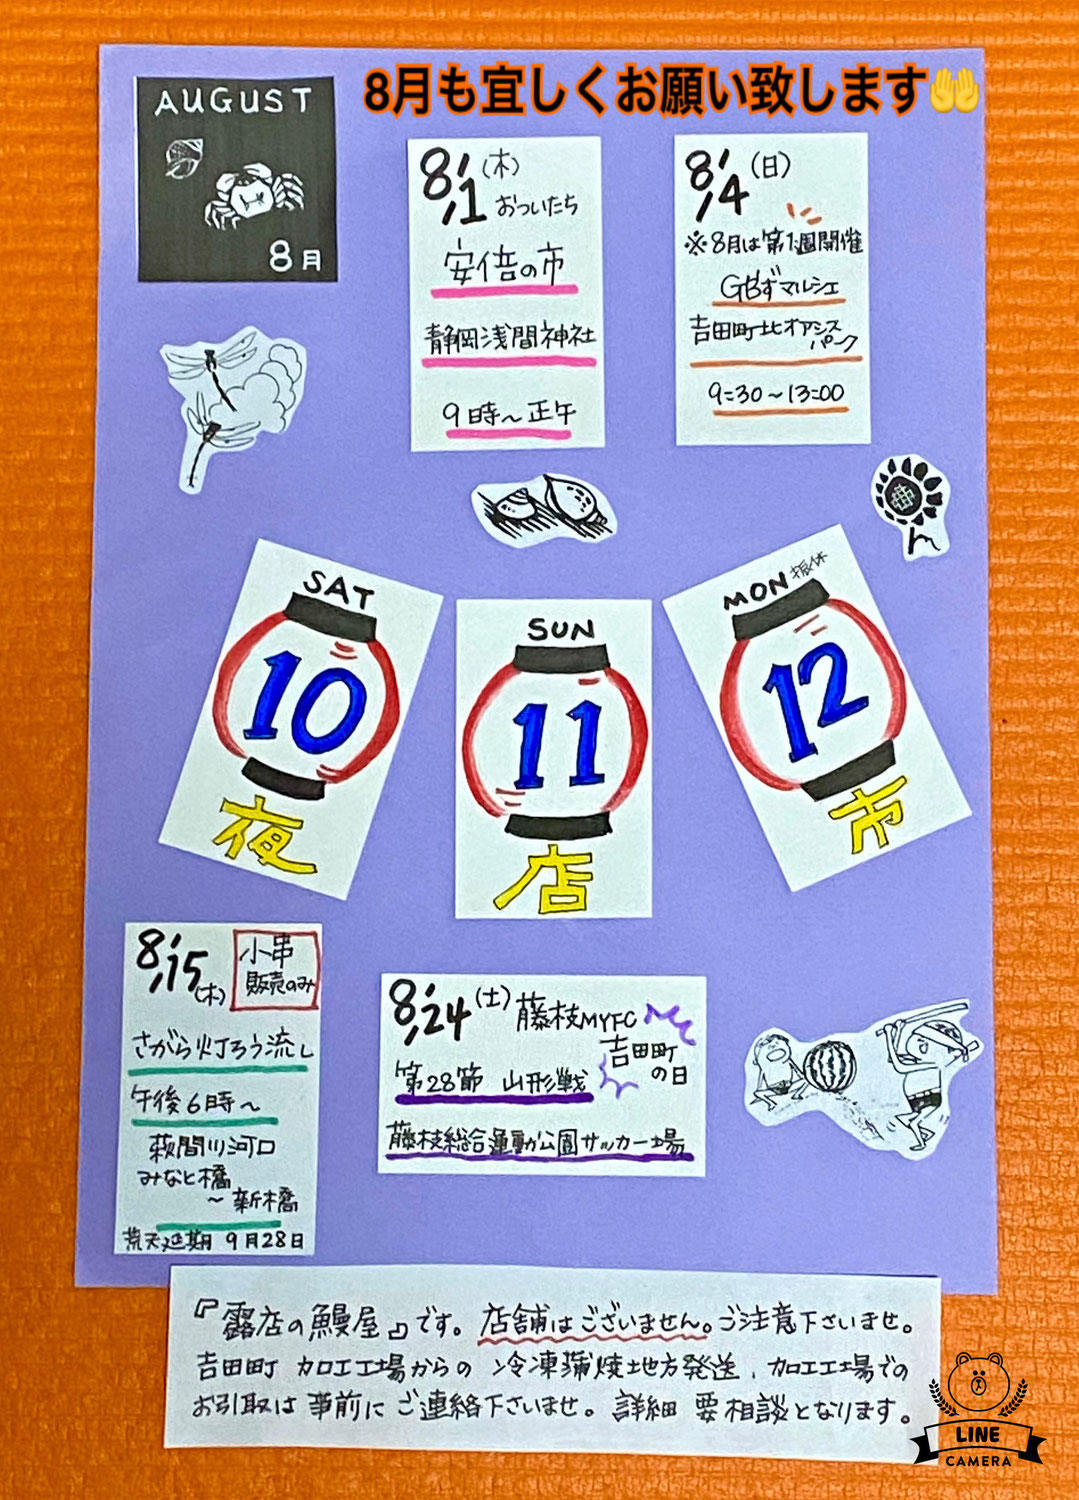 8月も宜しくお願い致します🤲
AUGUST
8月
8/1(木)
おついたち
安倍の市
静岡浅間神社
9時～正午
8/4(日)
※8月は第1週開催
GBずマルシェ
吉田町北オアシス
パーク
9:30～13:00
SAT
10
夜
SUN
11
店
MON 振休
12
市
8/15(木)
小串
販売のみ
さがら灯ろう流し
午後6時～
萩間川河口
みなと橋
～新橋
荒天延期 9月28日
8/24(土)藤枝MYFC
吉田町
の日
第28節 山形戦
藤枝総合運動公園サッカー場
『露店の鰻屋』です。店舗はございません。ご注意下さいませ。
吉田町 加工工場からの 冷凍蒲焼地方発送、加工工場での
お引取は事前にご連絡下さいませ。詳細 要相談となります。
LINE
CAMERA